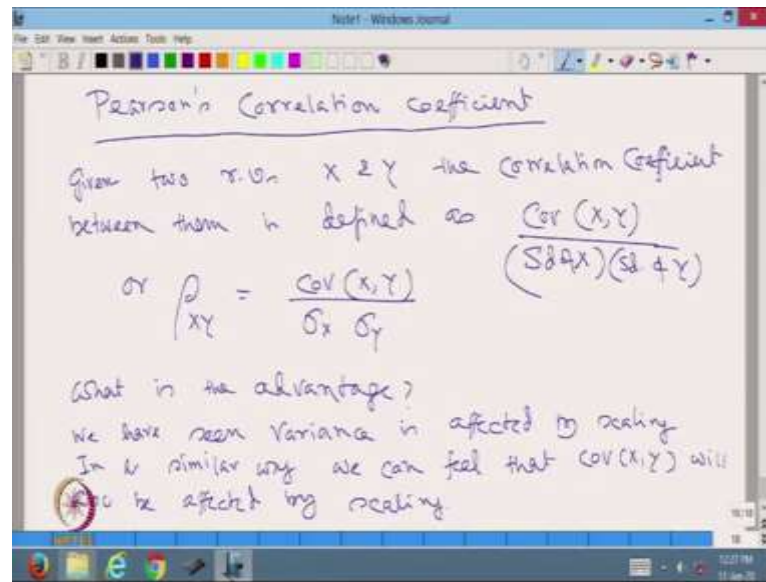 Note1 - Windows Journal
File Edit View Insert Actions Tools Help
Pearson's Correlation coefficient
Given two r.v. X & Y the Correlation Coefficient
between them is defined as Cov (X,Y)
(Sd of X) (Sd of Y)
or ρXY = Cov (X,Y)
σx σy
What is the advantage?
We have seen Variance is affected by scaling
In a similar way we can feel that Cov (X,Y) will
be affected by scaling
12:27 PM